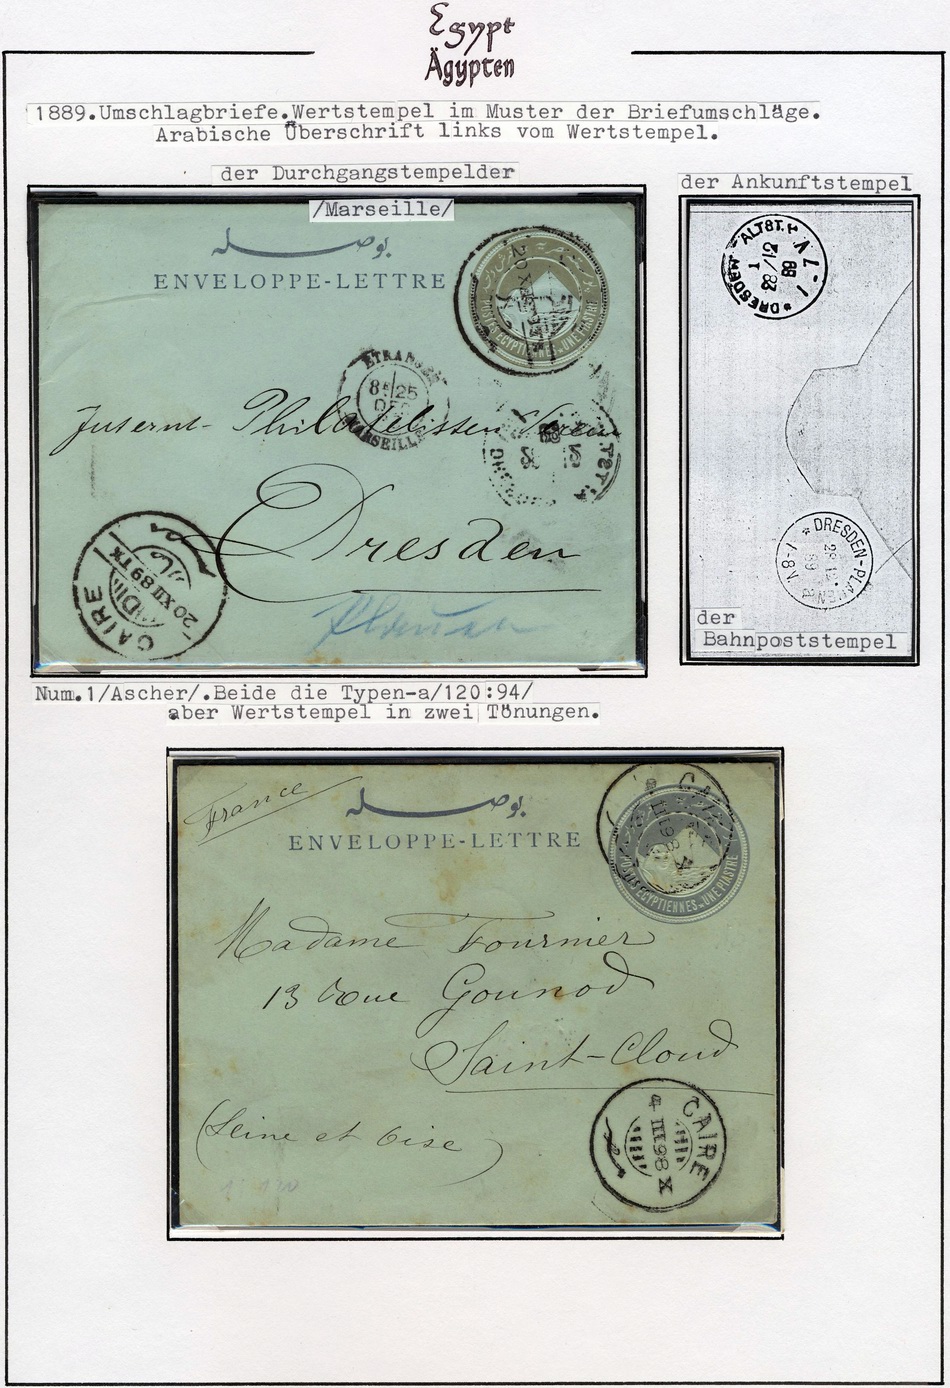 Egypt
Ägypten
1889.Umschlagbriefe.Wertstempel im Muster der Briefumschläge.
Arabische Überschrift links vom Wertstempel.
der Durchgangstempelder
/Marseille/
بوصله
ENVELOPPE-LETTRE
POSTES EGYPTIENNES UNE PIASTRE
ETRANGER
25
DEC
MARSEILLE
Philatelisten Verein
Dresden
Plauen
CAIRE
20 XII 89 TX
der Ankunftstempel
DRESDEN ALTST.
DRESDEN-PLAUEN
8-9V
der
Bahnpoststempel
Num.1/Ascher/.Beide die Typen-a/120:94/
aber Wertstempel in zwei Tönungen.
France
بوصله
ENVELOPPE-LETTRE
POSTES EGYPTIENNES UNE PIASTRE
Madame Fournier
13 rue Gounod
Saint-Cloud
(Seine et Oise)
CAIRE
4 III 98 X